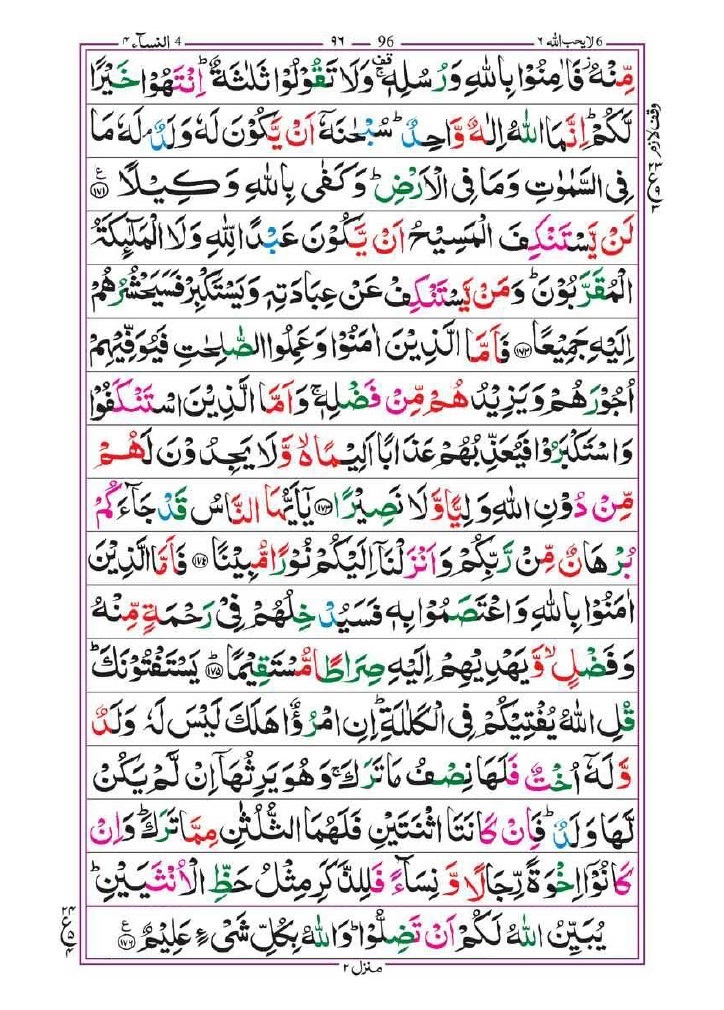 لا يحب الله ٦ 6 96 ٩٦ 4 النسآء ٤
مِّنْهُ ۫ فَاٰمِنُوْا بِاللّٰهِ وَرُسُلِهٖ ۚ وَلَا تَقُوْلُوْا ثَلٰثَةٌ ؕ اِنْتَهُوْا خَيْرًا
لَّكُمْ ؕ اِنَّمَا اللّٰهُ اِلٰهٌ وَّاحِدٌ ؕ سُبْحٰنَهٗۤ اَنْ يَّكُوْنَ لَهٗ وَلَدٌ ۘ لَهٗ مَا
فِى السَّمٰوٰتِ وَمَا فِى الْاَرْضِ ؕ وَكَفٰى بِاللّٰهِ وَكِيْلًا ﴿۱۷۱﴾ ع
لَنْ يَّسْتَنْكِفَ الْمَسِيْحُ اَنْ يَّكُوْنَ عَبْدًا لِّلّٰهِ وَلَا الْمَلٰٓئِكَةُ
الْمُقَرَّبُوْنَ ؕ وَمَنْ يَّسْتَنْكِفْ عَنْ عِبَادَتِهٖ وَيَسْتَكْبِرْ فَسَيَحْشُرُهُمْ
اِلَيْهِ جَمِيْعًا ﴿۱۷۲﴾ فَاَمَّا الَّذِيْنَ اٰمَنُوْا وَعَمِلُوا الصّٰلِحٰتِ فَيُوَفِّيْهِمْ
اُجُوْرَهُمْ وَيَزِيْدُهُمْ مِّنْ فَضْلِهٖ ۚ وَاَمَّا الَّذِيْنَ اسْتَنْكَفُوْا
وَاسْتَكْبَرُوْا فَيُعَذِّبُهُمْ عَذَابًا اَلِيْمًا ۙ وَّلَا يَجِدُوْنَ لَهُمْ
مِّنْ دُوْنِ اللّٰهِ وَلِيًّا وَّلَا نَصِيْرًا ﴿۱۷۳﴾ يٰۤاَيُّهَا النَّاسُ قَدْ جَآءَكُمْ
بُرْهَانٌ مِّنْ رَّبِّكُمْ وَاَنْزَلْنَاۤ اِلَيْكُمْ نُوْرًا مُّبِيْنًا ﴿۱۷۴﴾ فَاَمَّا الَّذِيْنَ
اٰمَنُوْا بِاللّٰهِ وَاعْتَصَمُوْا بِهٖ فَسَيُدْخِلُهُمْ فِىْ رَحْمَةٍ مِّنْهُ
وَفَضْلٍ ۙ وَّيَهْدِيْهِمْ اِلَيْهِ صِرَاطًا مُّسْتَقِيْمًا ﴿۱۷۵﴾ ؕ يَسْتَفْتُوْنَكَ ؕ
قُلِ اللّٰهُ يُفْتِيْكُمْ فِى الْكَلٰلَةِ ؕ اِنِ امْرُؤٌا هَلَكَ لَيْسَ لَهٗ وَلَدٌ
وَّلَهٗۤ اُخْتٌ فَلَهَا نِصْفُ مَا تَرَكَ ۚ وَهُوَ يَرِثُهَاۤ اِنْ لَّمْ يَكُنْ
لَّهَا وَلَدٌ ؕ فَاِنْ كَانَتَا اثْنَتَيْنِ فَلَهُمَا الثُّلُثٰنِ مِمَّا تَرَكَ ؕ وَاِنْ
كَانُوْۤا اِخْوَةً رِّجَالًا وَّنِسَآءً فَلِلذَّكَرِ مِثْلُ حَظِّ الْاُنْثَيَيْنِ ؕ
يُبَيِّنُ اللّٰهُ لَكُمْ اَنْ تَضِلُّوْا ؕ وَاللّٰهُ بِكُلِّ شَىْءٍ عَلِيْمٌ ﴿۱۷۶﴾ ع
منزل ٢
وقف لازم